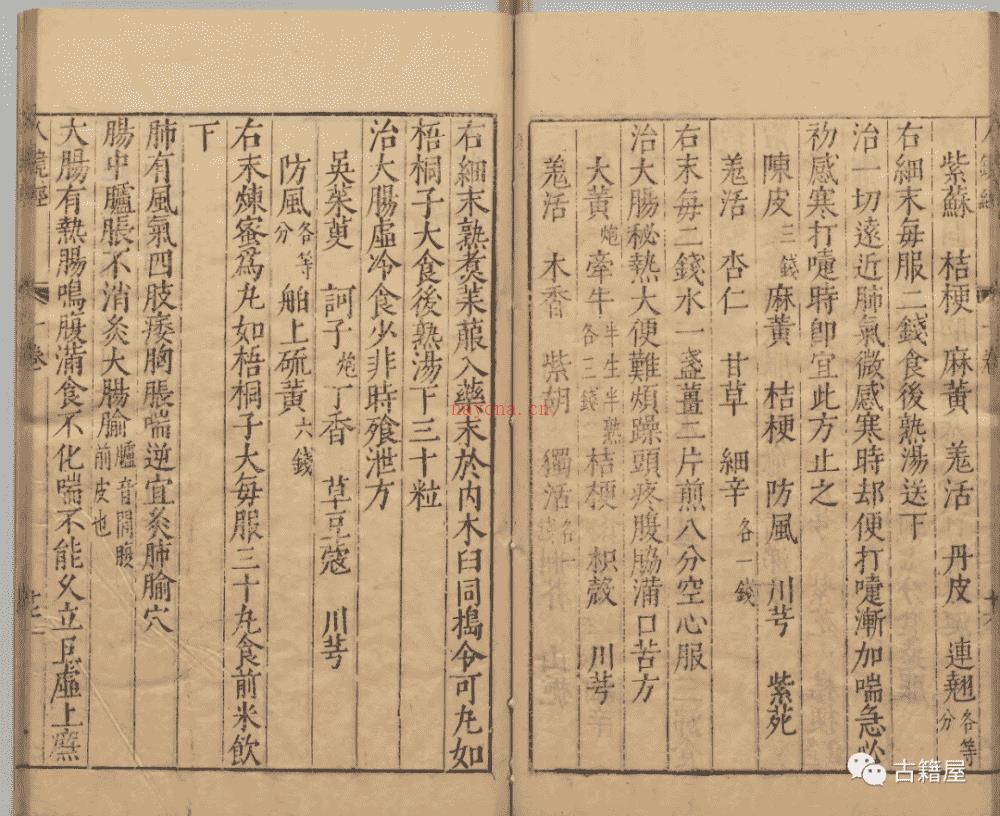 紫蘇 桔梗 麻黃 羗活 丹皮 連翹各等分
右細末每服二錢食後熟湯送下
治一切遠近肺氣微感寒時却便打嚏漸加喘急必
初感寒打嚏時卽宜此方止之
陳皮三錢 麻黃 桔梗 防風 川芎 紫菀
羗活 杏仁 甘草 細辛各一錢
右末每二錢水一盞薑二片煎八分空心服
治大腸秘熱大便難煩躁頭疼腹脇滿口苦方
大黃炮 牽牛半生半熟各三錢 桔梗 枳殼 川芎
羗活 木香 柴胡 獨活各
右細末熟煑菉菔入藥末於內木臼同搗令可丸如
梧桐子大食後熟湯下三十粒
治大腸虛冷食少非時飱泄方
吳茱萸 訶子炮 丁香 草豆蔻 川芎
防風各等分 舶上硫黃六錢
右末煉蜜爲丸如梧桐子大每服三十丸食前米飲
下
肺有風氣四肢痿胸脹喘逆宜灸肺腧穴
腸中臚脹不消灸大腸腧臚音閭腹前皮也
大腸有熱腸鳴腹滿食不化喘不能久立旦虛上𤍠
八鏡經 卷
haycna.cn
古籍屋